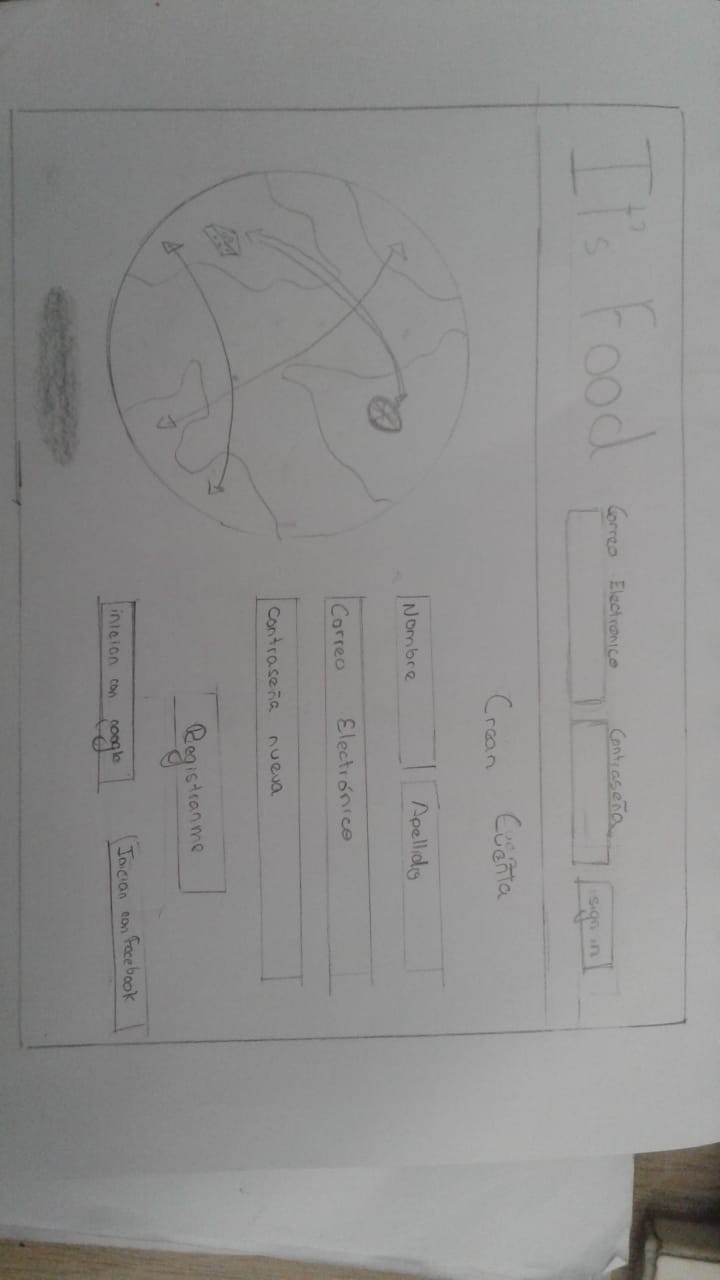 It's Food
Correo Electronico Contraseña
sign in
Crear Cuenta
Nombre Apellido
Correo Electrónico
Contraseña nueva
Registrarme
iniciar con google Iniciar con Facebook